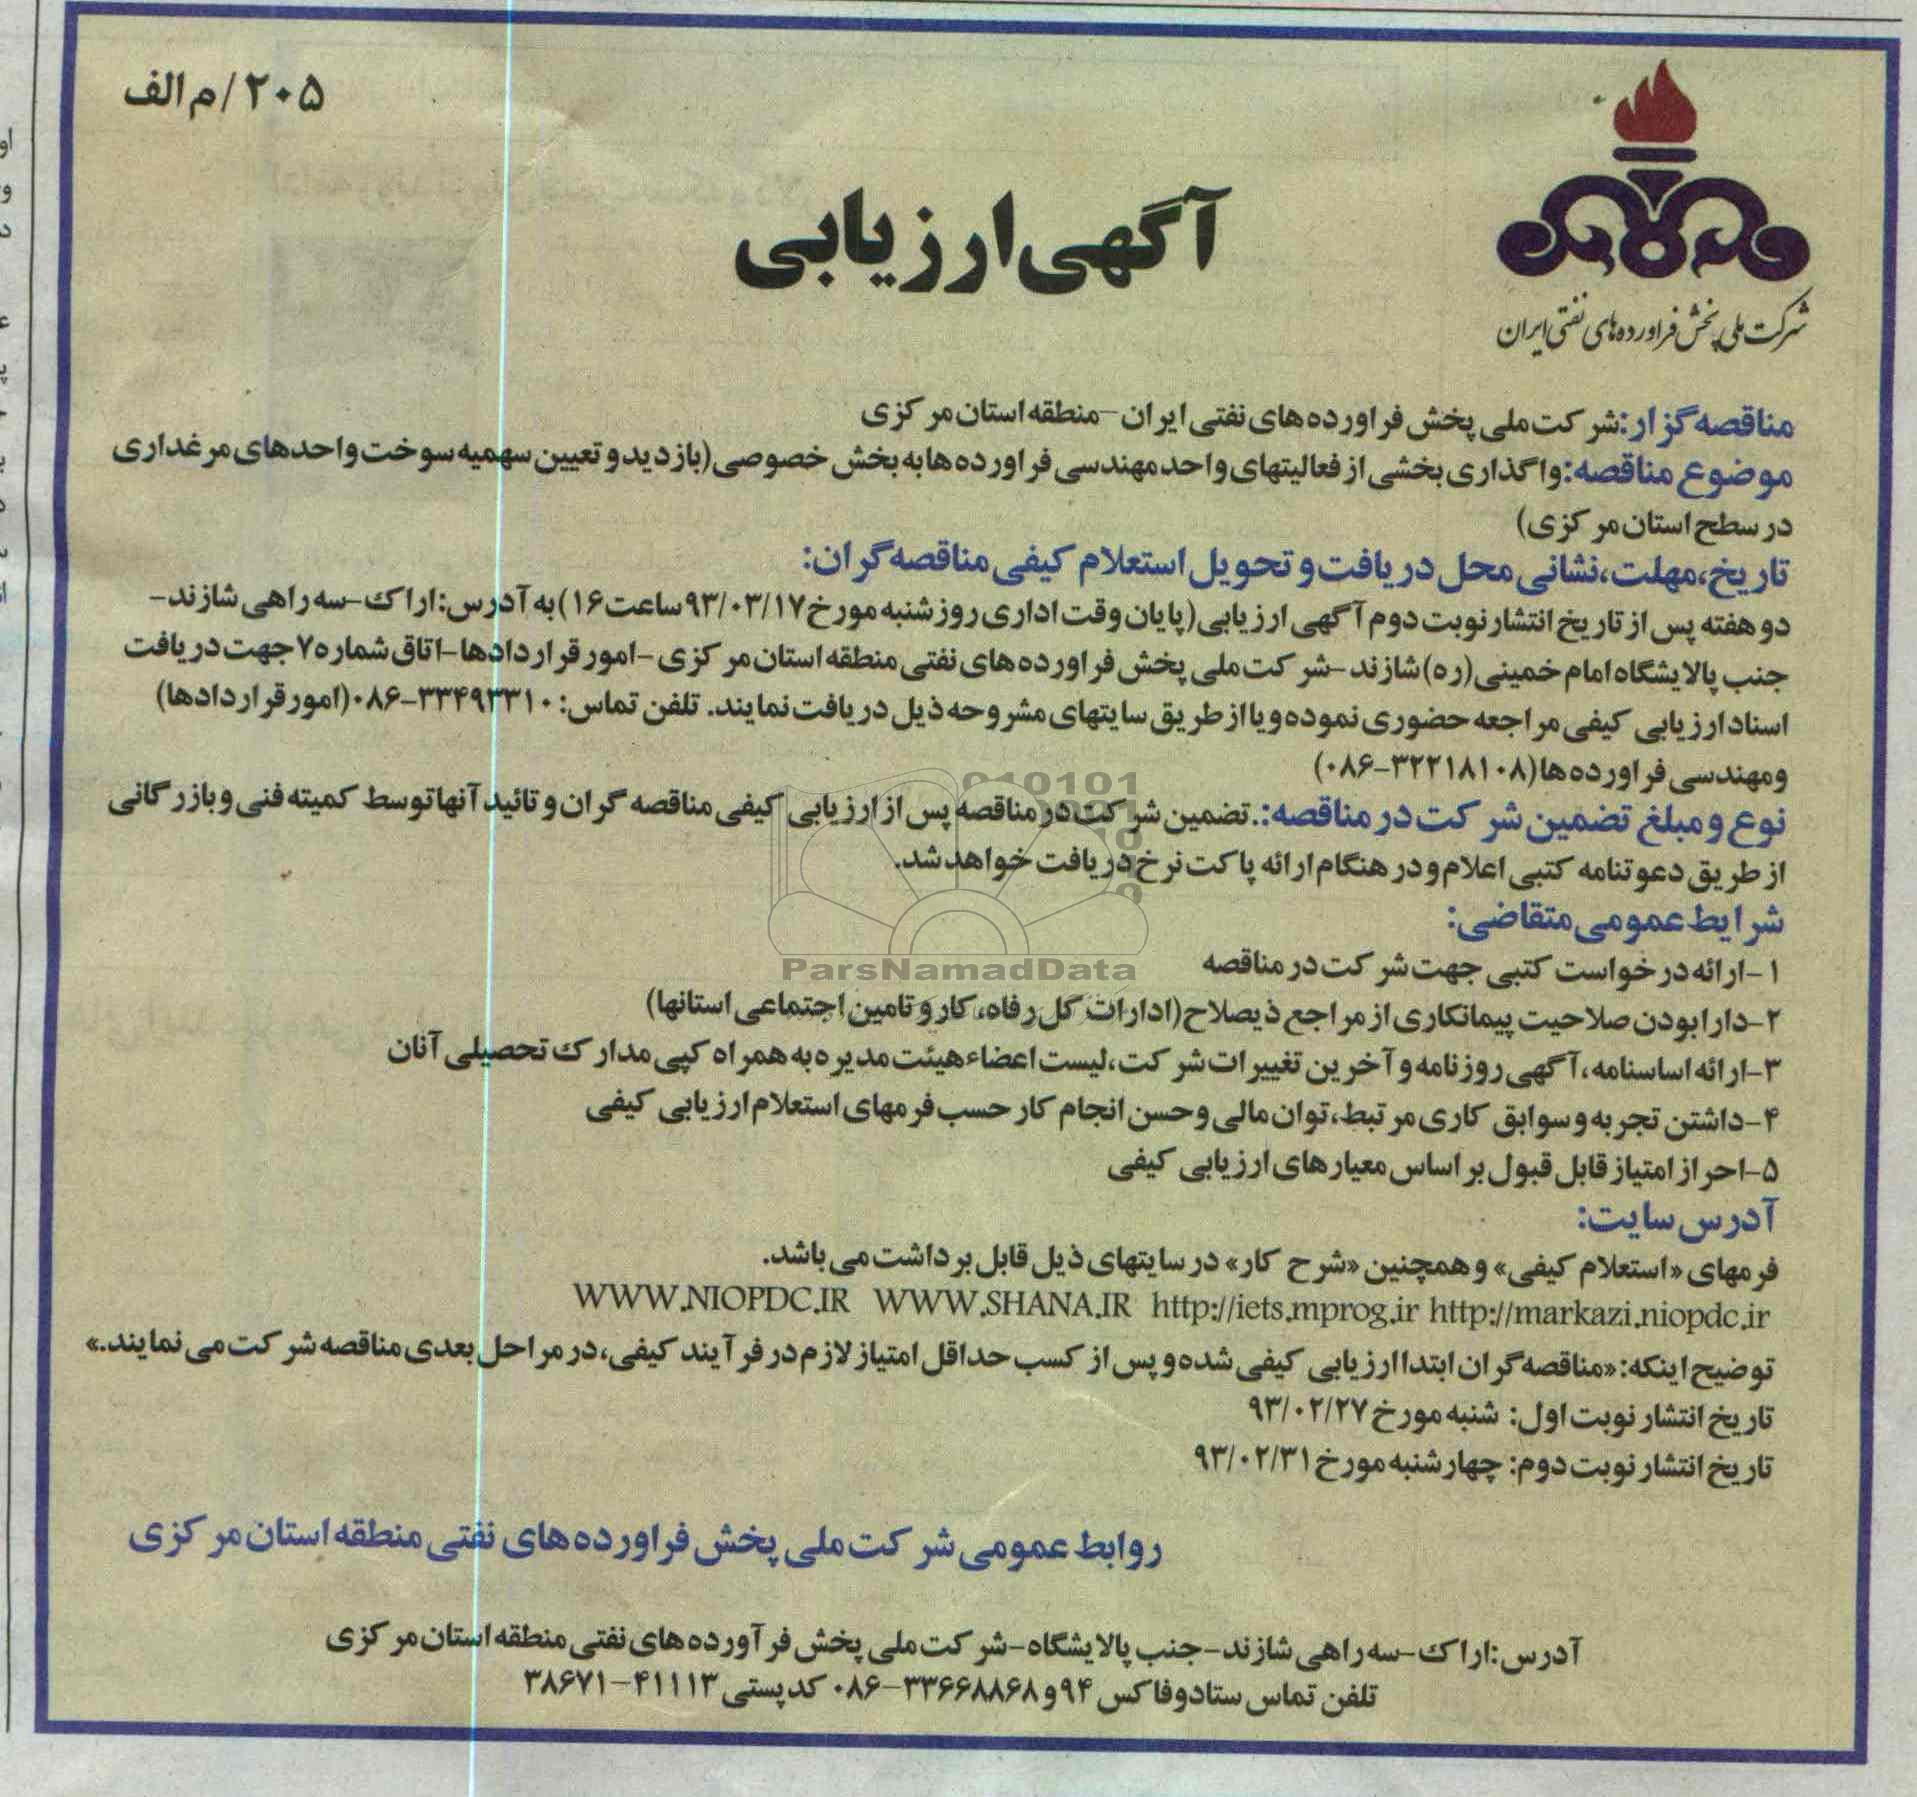 ۲۰۵/م الف
شرکت ملی پخش فراورده‌های نفتی ایران
آگهی ارزیابی
مناقصه گزار: شرکت ملی پخش فراورده های نفتی ایران - منطقه استان مرکزی
موضوع مناقصه: واگذاری بخشی از فعالیتهای واحد مهندسی فراورده ها به بخش خصوصی (بازدید و تعیین سهمیه سوخت واحدهای مرغداری
در سطح استان مرکزی)
تاریخ، مهلت، نشانی محل دریافت و تحویل استعلام کیفی مناقصه گران:
دو هفته پس از تاریخ انتشار نوبت دوم آگهی ارزیابی (پایان وقت اداری روز شنبه مورخ ۹۳/۰۳/۱۷ ساعت ۱۶) به آدرس: اراک - سه راهی شازند -
جنب پالایشگاه امام خمینی (ره) شازند - شرکت ملی پخش فراورده های نفتی منطقه استان مرکزی - امور قراردادها - اتاق شماره ۷ جهت دریافت
اسناد ارزیابی کیفی مراجعه حضوری نموده و یا از طریق سایتهای مشروحه ذیل دریافت نمایند. تلفن تماس: ۳۳۴۹۳۳۱۰-۰۸۶ (امور قراردادها)
و مهندسی فراورده ها (۳۲۲۱۸۱۰۸-۰۸۶)
نوع و مبلغ تضمین شرکت در مناقصه:. تضمین شرکت در مناقصه پس از ارزیابی کیفی مناقصه گران و تائید آنها توسط کمیته فنی و بازرگانی
از طریق دعوتنامه کتبی اعلام و در هنگام ارائه پاکت نرخ دریافت خواهد شد.
شرایط عمومی متقاضی:
۱- ارائه درخواست کتبی جهت شرکت در مناقصه
۲- دارا بودن صلاحیت پیمانکاری از مراجع ذیصلاح (ادارات کل رفاه، کار و تامین اجتماعی استانها)
۳- ارائه اساسنامه، آگهی روزنامه و آخرین تغییرات شرکت، لیست اعضاء هیئت مدیره به همراه کپی مدارک تحصیلی آنان
۴- داشتن تجربه و سوابق کاری مرتبط، توان مالی و حسن انجام کار حسب فرمهای استعلام ارزیابی کیفی
۵- احراز امتیاز قابل قبول بر اساس معیارهای ارزیابی کیفی
آدرس سایت:
فرمهای «استعلام کیفی» و همچنین «شرح کار» در سایتهای ذیل قابل برداشت می باشد.
WWW.NIOPDC.IR WWW.SHANA.IR http://iets.mprog.ir http://markazi.niopdc.ir
توضیح اینکه: «مناقصه گران ابتدا ارزیابی کیفی شده و پس از کسب حداقل امتیاز لازم در فرآیند کیفی، در مراحل بعدی مناقصه شرکت می نمایند.»
تاریخ انتشار نوبت اول: شنبه مورخ ۹۳/۰۲/۲۷
تاریخ انتشار نوبت دوم: چهارشنبه مورخ ۹۳/۰۲/۳۱
روابط عمومی شرکت ملی پخش فراورده های نفتی منطقه استان مرکزی
آدرس: اراک - سه راهی شازند - جنب پالایشگاه - شرکت ملی پخش فرآورده های نفتی منطقه استان مرکزی
تلفن تماس ستاد و فاکس ۹۴ و ۳۳۶۶۸۸۶۸-۰۸۶ کدپستی ۴۱۱۱۳-۳۸۶۷۱
ParsNamadData